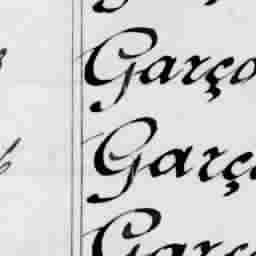 Garço
Garç
Garç